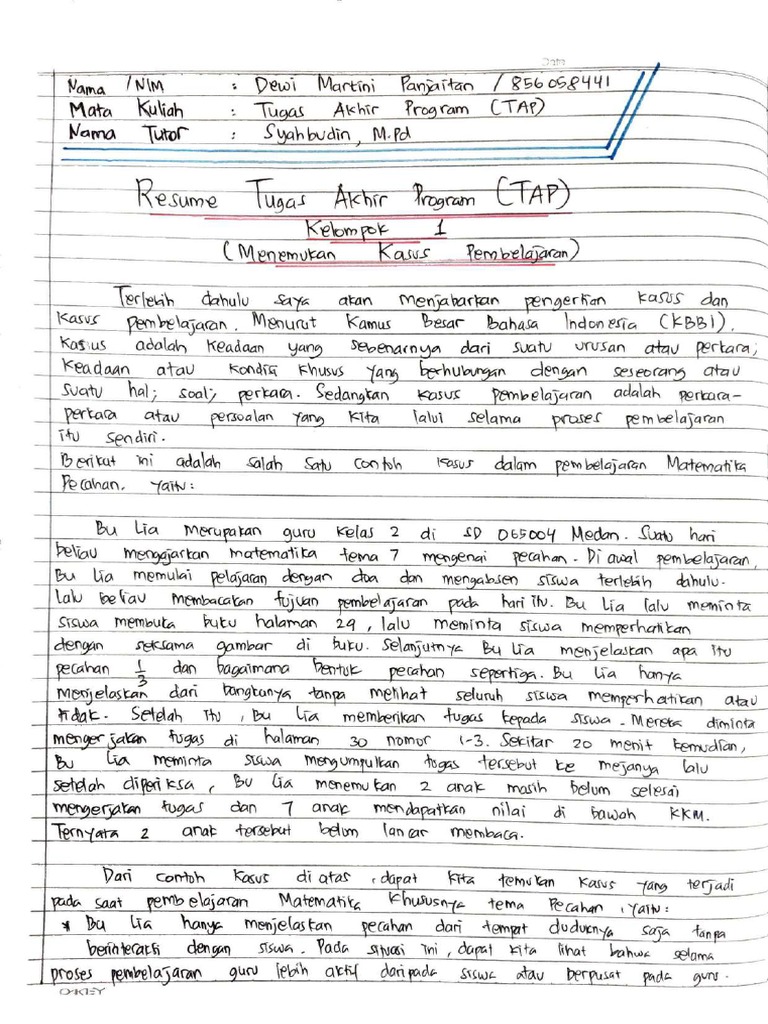 Date
Nama /NIM : Dewi Martini Panjaitan / 856058441
Mata Kuliah : Tugas Akhir Program (TAP)
Nama Tutor : Syahbudin, M.Pd
Resume Tugas Akhir Program (TAP)
Kelompok 1
(Menemukan Kasus Pembelajaran)
Terlebih dahulu saya akan menjabarkan pengertian kasus dan
kasus pembelajaran. Menurut Kamus Besar Bahasa Indonesia (KBBI),
kasus adalah keadaan yang sebenarnya dari suatu urusan atau perkara;
keadaan atau kondisi khusus yang berhubungan dengan seseorang atau
suatu hal; soal; perkara. Sedangkan kasus pembelajaran adalah perkara-
perkara atau persoalan yang kita lalui selama proses pembelajaran
itu sendiri.
Berikut ini adalah salah satu contoh kasus dalam pembelajaran Matematika
Pecahan. Yaitu:
Bu Lia merupakan guru kelas 2 di SD 065004 Medan. Suatu hari
beliau mengajarkan matematika tema 7 mengenai pecahan. Di awal pembelajaran,
Bu Lia memulai pelajaran dengan doa dan mengabsen siswa terlebih dahulu.
Lalu beliau membacakan tujuan pembelajaran pada hari itu. Bu Lia lalu meminta
siswa membuka buku halaman 29, lalu meminta siswa memperhatikan
dengan seksama gambar di buku. Selanjutnya Bu Lia menjelaskan apa itu
pecahan 1/3 dan bagaimana bentuk pecahan sepertiga. Bu Lia hanya
menjelaskan dari bangkunya tanpa melihat seluruh siswa memperhatikan atau
tidak. Setelah itu, Bu Lia memberikan tugas kepada siswa. Mereka diminta
mengerjakan tugas di halaman 30 nomor 1-3. Sekitar 20 menit kemudian,
Bu Lia meminta siswa mengumpulkan tugas tersebut ke mejanya lalu
setelah diperiksa, Bu Lia menemukan 2 anak masih belum selesai
mengerjakan tugas dan 7 anak mendapatkan nilai di bawah KKM.
Ternyata 2 anak tersebut belum lancar membaca.
Dari contoh kasus di atas, dapat kita temukan kasus yang terjadi
pada saat pembelajaran Matematika khususnya tema Pecahan, yaitu:
* Bu Lia hanya menjelaskan pecahan dari tempat duduknya saja tanpa
berinteraksi dengan siswa. Pada situasi ini, dapat kita lihat bahwa selama
proses pembelajaran guru lebih aktif daripada siswa atau berpusat pada guru.
OKEY